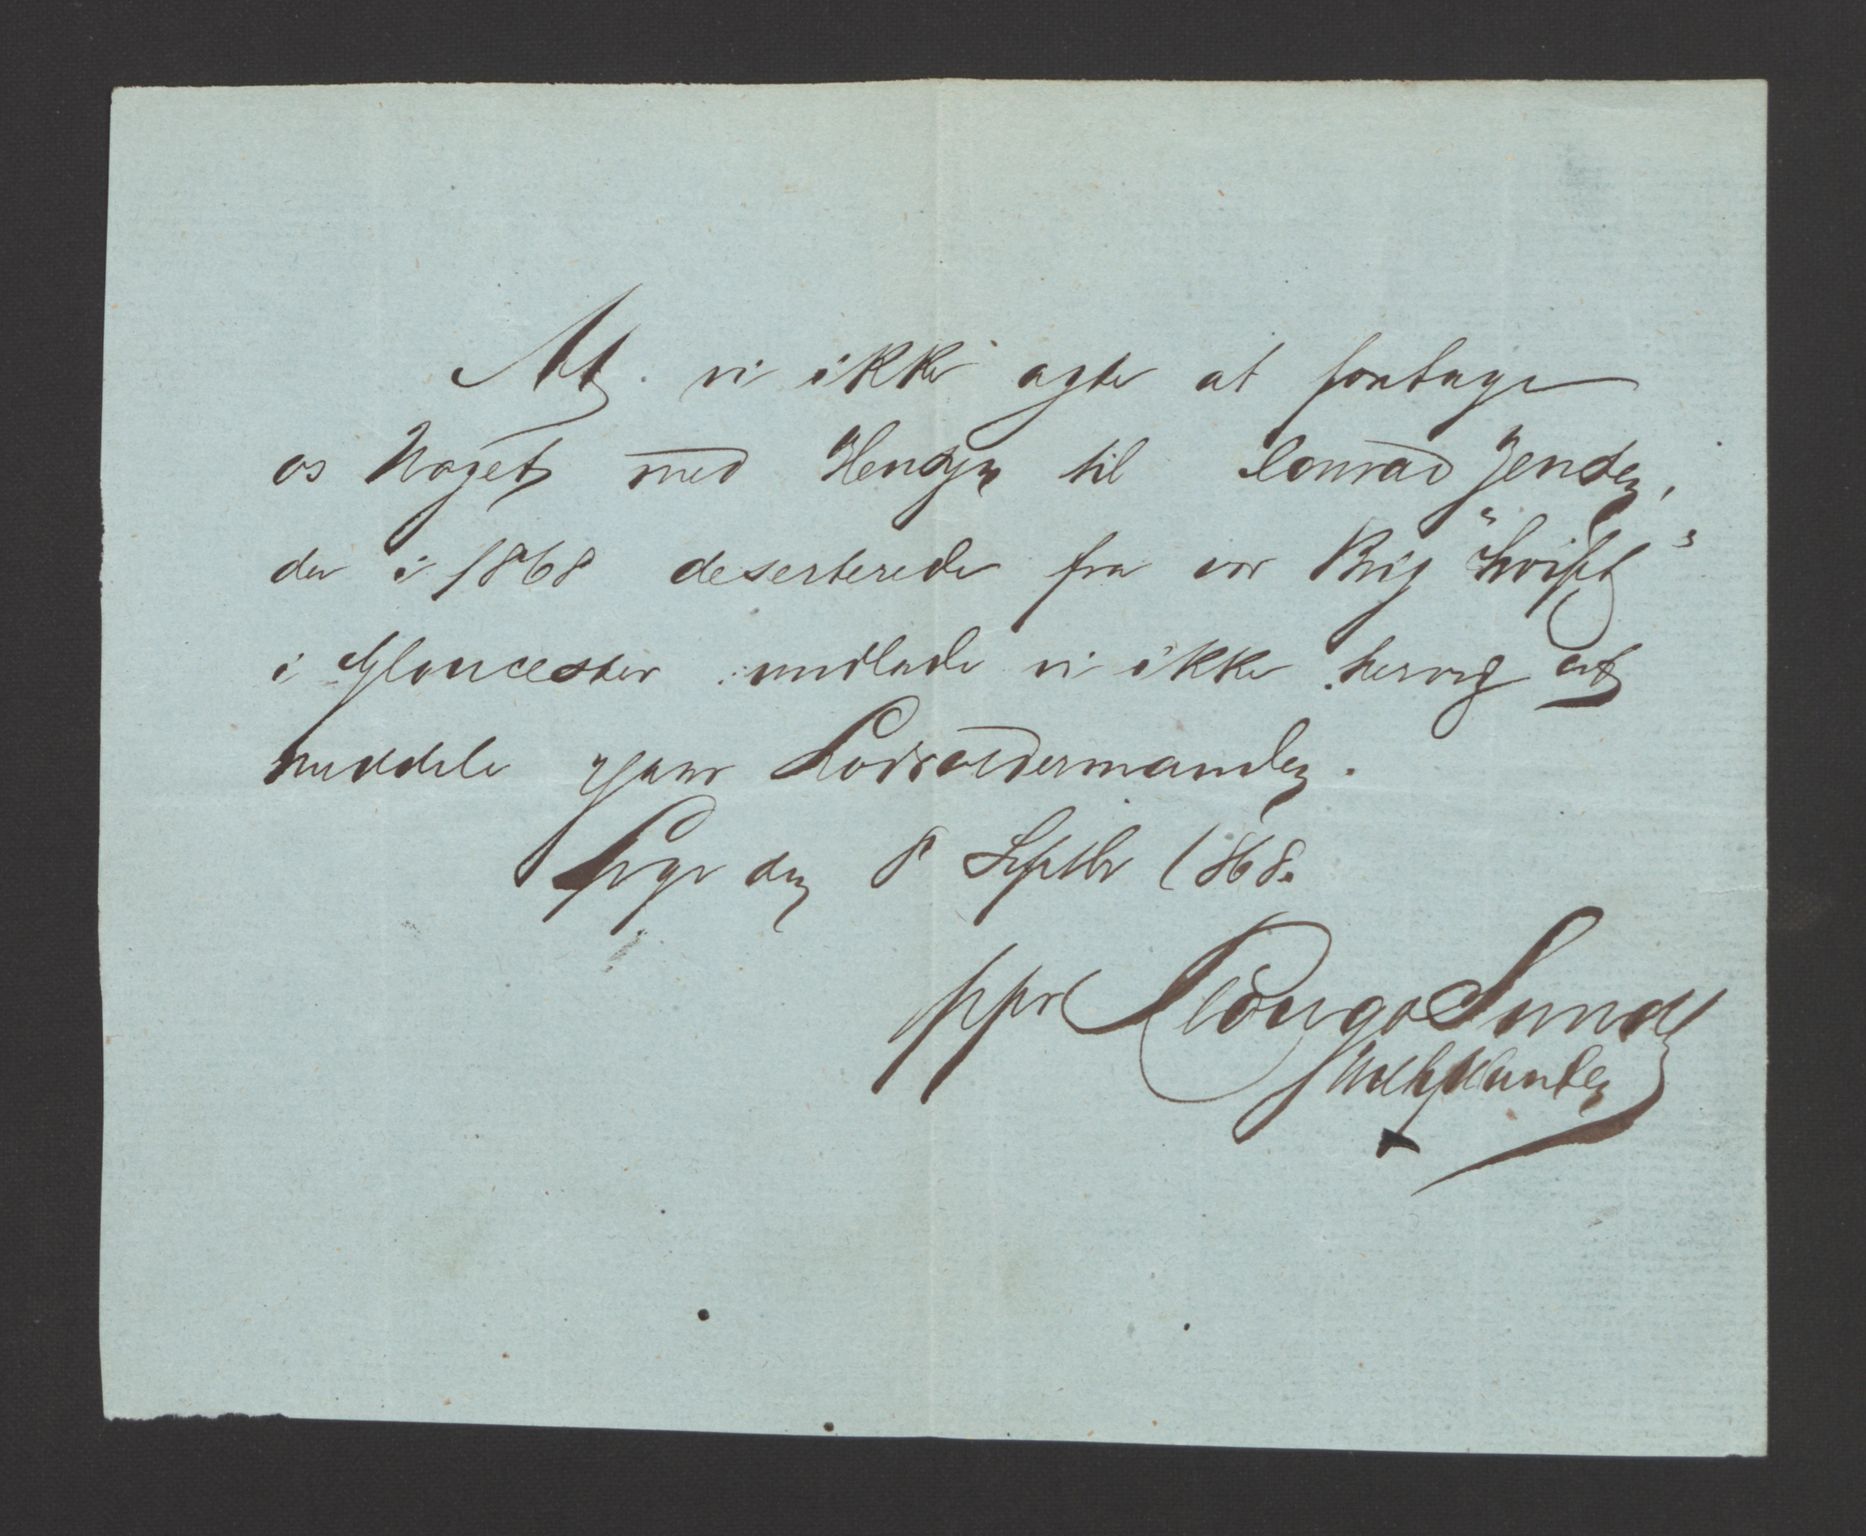 At vi ikke agte at foretage
os Noget med Hensyn til Conrad Jensen,
der i 1868 deserterede fra vor Brig "Swift"
i Gloucester undlade vi ikke herved at
meddele Herr Lodsoldermanden.
den 8 Septbr 1868.
ppr Sund